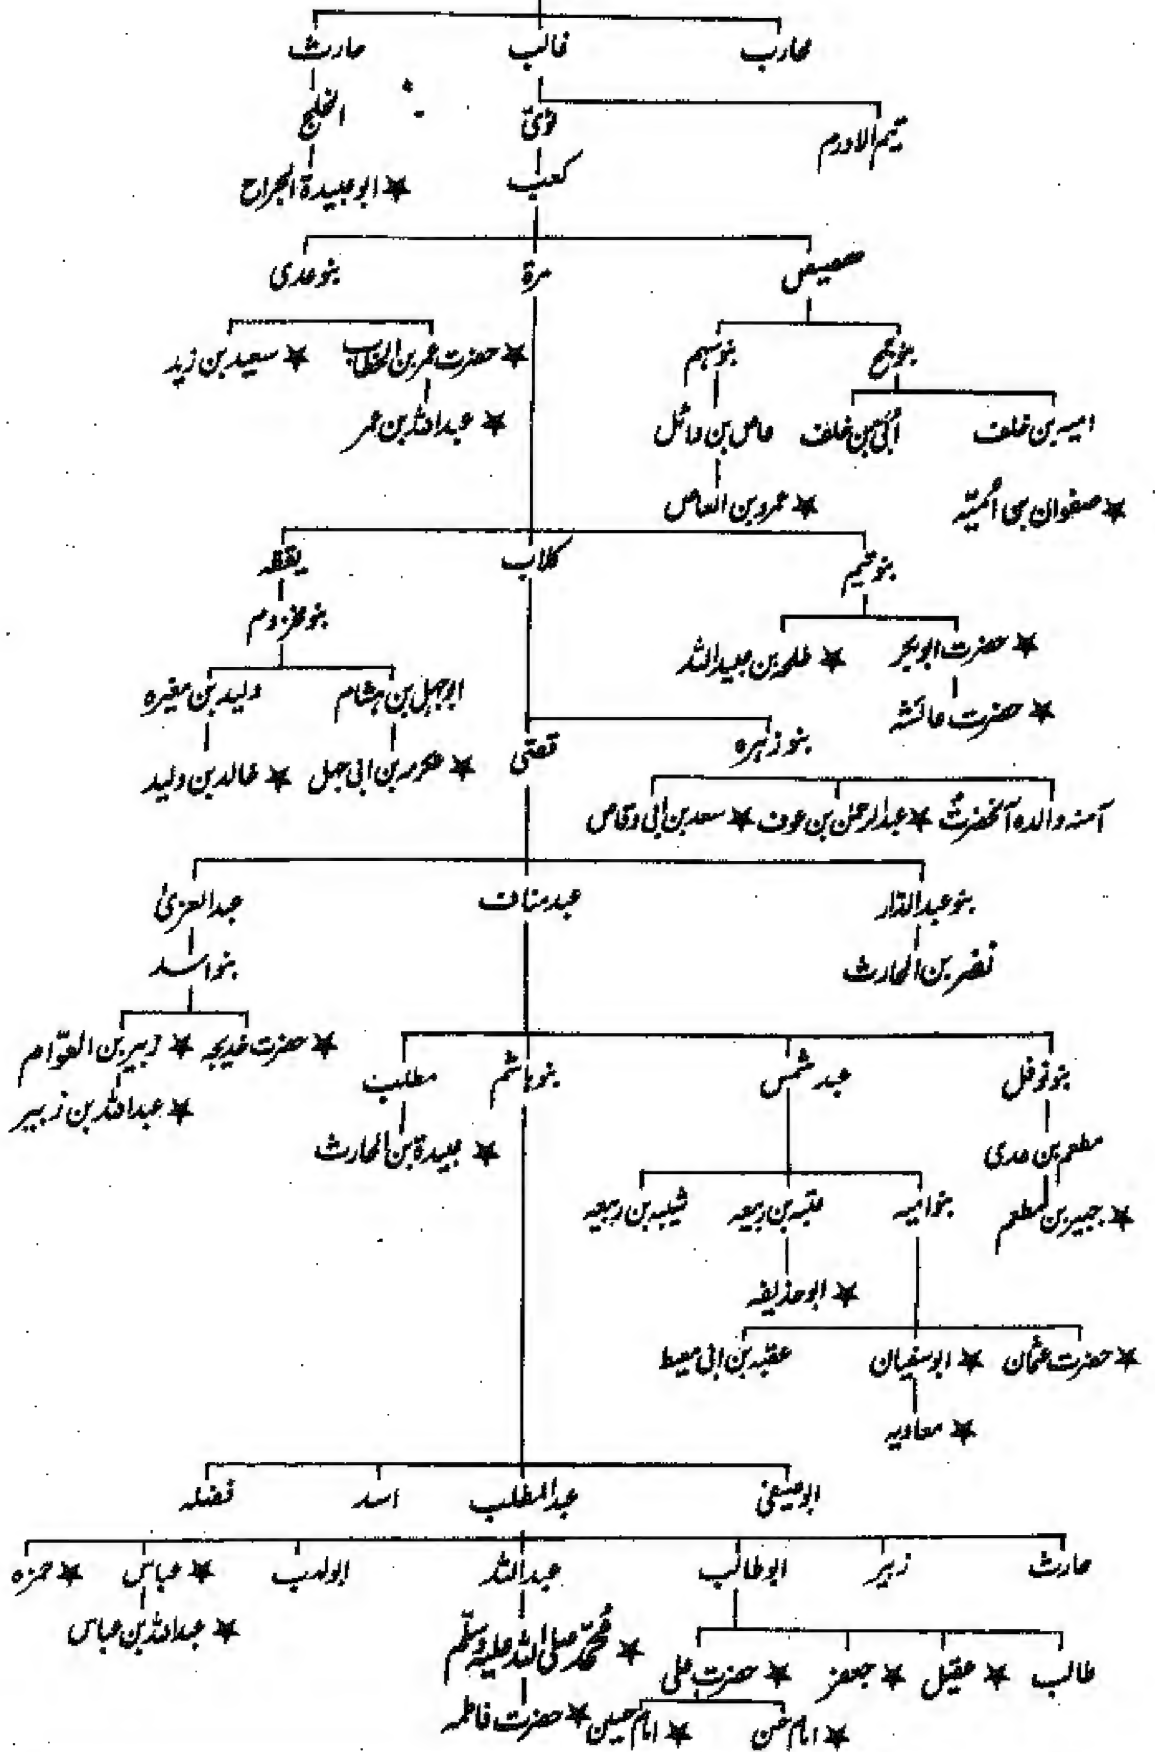 محارب غالب حارث
تیم الادرم لوئ الخلج
کعب ★ ابو عبیدۃ الجراح
ھصیص مرۃ بنو عدی
بنو جمح بنو سہم ★ حضرت عمر بن الخطاب ★ سعید بن زید
امیہ بن خلف اُبیّ بن خلف عاص بن وائل ★ عبداللہ بن عمر
★ صفوان بی اُمیّہ ★ عمرو بن العاص
بنو تیم کلاب یقظہ
بنو مخزوم
★ حضرت ابوبکر ★ طلحہ بن عبیداللہ
★ حضرت عائشہ ابوجہل بن ہشام ولید بن مغیرہ
بنو زہرہ قصّی ★ عکرمہ بن ابی جہل ★ خالد بن ولید
آمنہ والدہ آنحضرتؐ ★ عبدالرحمٰن بن عوف ★ سعد بن ابی وقاص
بنو عبدالدّار عبد مناف عبدالعزیٰ
نضر بن الحارث بنو اسد
★ حضرت خدیجہ ★ زبیر بن العوّام
بنو نوفل عبد شمس بنو ہاشم مطلب ★ عبداللہ بن زبیر
مطعم بن عدی ★ عبیدۃ بن الحارث
★ جبیر بن مطعم بنو امیہ عتبہ بن ربیعہ شیبہ بن ربیعہ
★ ابو حذیفہ
★ حضرت عثمان ★ ابوسفیان عقبہ بن ابی معیط
★ معاویہ
ابوصیفی عبدالمطلب اسد نضلہ
حارث زبیر ابوطالب عبداللہ ابولہب ★ عباس ★ حمزہ
★ محمّد صلی اللہ علیہ وسلّم ★ عبداللہ بن عباس
طالب ★ عقیل ★ جعفر ★ حضرت علی
★ امام حسن ★ امام حسین ★ حضرت فاطمہ